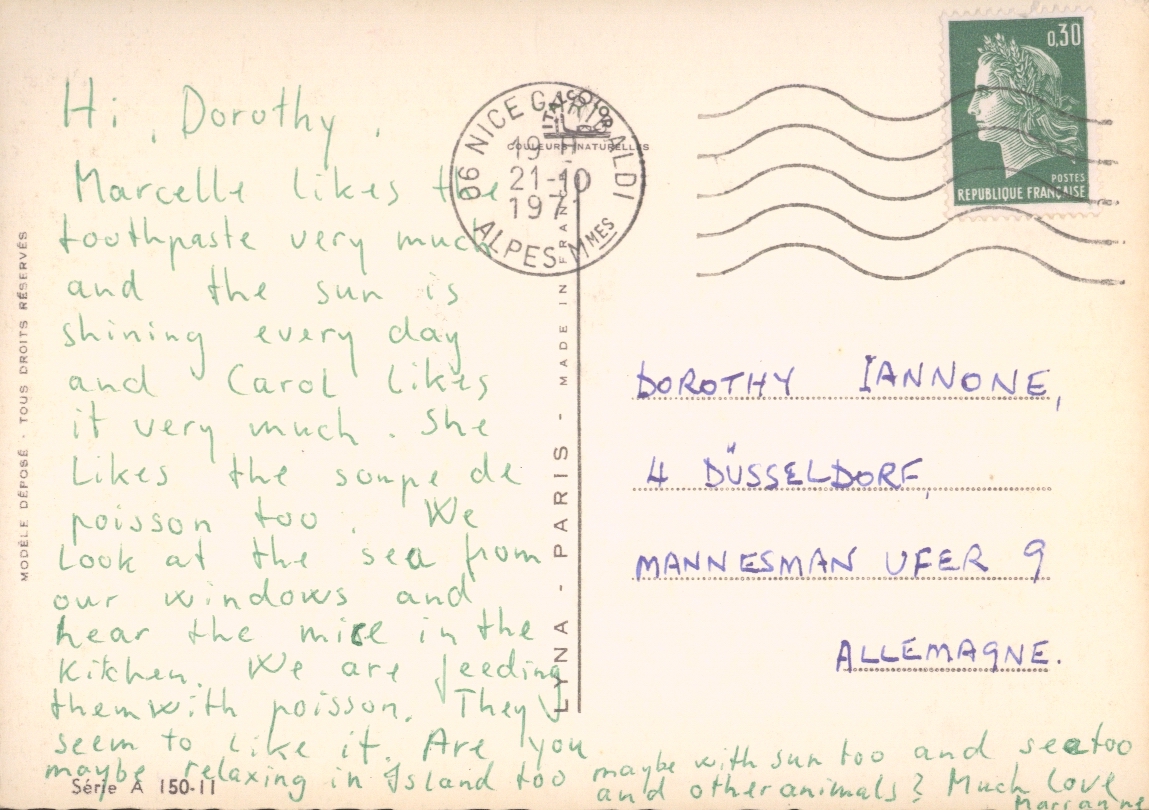 Hi, Dorothy,
Marcelle likes the
toothpaste very much
and the sun is
shining every day
and Carol likes
it very much. She
likes the soupe de
poisson too. We
look at the sea from
our windows and
hear the mice in the
kitchen. We are feeding
them with poisson. They
seem to like it. Are you
maybe relaxing in Island too
maybe with sun too and sea too
and other animals? Much love
Marianne
MODÈLE DÉPOSÉ - TOUS DROITS RÉSERVÉS
Série A 150-11
LYNA - PARIS - MADE IN FRANCE
ITALCOLOR
COULEURS NATURELLES
06 NICE GARIBALDI
19 H
21-10
1971
ALPES-MMES
0,30
POSTES
REPUBLIQUE FRANÇAISE
DOROTHY IANNONE,
4 DÜSSELDORF,
MANNESMAN UFER 9
ALLEMAGNE.